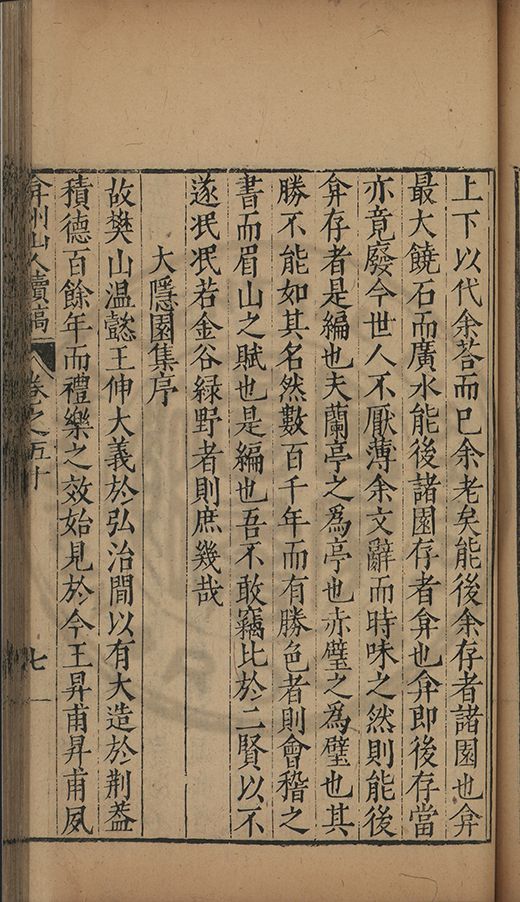 上下以代余荅而已余老矣能後余存者諸園也弇
最大饒石而廣水能後諸園存者弇也弇即後存當
亦竟廢今世人不厭薄余文辭而時味之然則能後
弇存者是編也夫蘭亭之為亭也赤璧之為璧也其
勝不能如其名然數百千年而有勝色者則會稽之
書而眉山之賦也是編也吾不敢竊比於二賢以不
遂泯泯若金谷緑野者則庶幾哉
大隱園集序
故樊山温懿王伸大義於弘治間以有大造於荆益
積德百餘年而禮樂之效始見於今王昇甫昇甫夙
弇州山人續稿 卷之五十 七